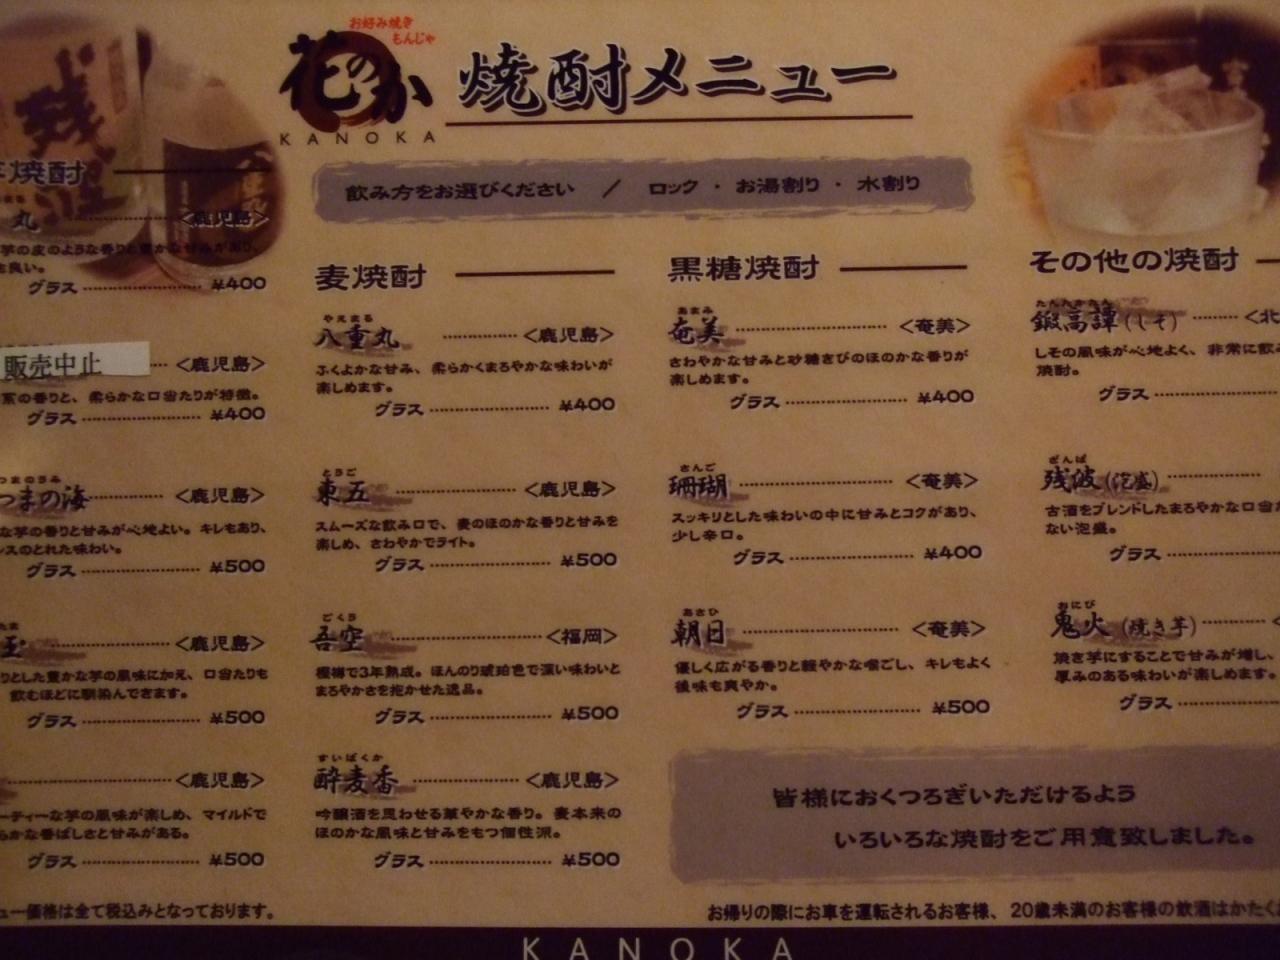 お好み焼き
もんじゃ
花のか
KANOKA
焼酎メニュー
飲み方をお選びください / ロック ・ お湯割り ・ 水割り
焼酎
丸 <鹿児島>
芋の皮のような香りと豊かな甘みがあり、
良い。
グラス ¥400
販売中止 <鹿児島>
の香りと、柔らかな口当たりが特徴。
グラス ¥400
つまのうみ
つまの海 <鹿児島>
な芋の香りと甘みが心地よい。キレもあり、
ンスのとれた味わい。
グラス ¥500
たま
玉 <鹿児島>
りとした豊かな芋の風味に加え、口当たりも
飲むほどに馴染んできます。
グラス ¥500
<鹿児島>
ーティーな芋の風味が楽しめ、マイルドで
らかな香ばしさと甘みがある。
グラス ¥500
ュー価格は全て税込みとなっております。
麦焼酎
やえまる
八重丸 <鹿児島>
ふくよかな甘み、柔らかくまろやかな味わいが
楽しめます。
グラス ¥400
とうご
東五 <鹿児島>
スムーズな飲み口で、麦のほのかな香りと甘みを
楽しめ、さわやかでライト。
グラス ¥500
ごくう
吾空 <福岡>
樫樽で3年熟成。ほんのり琥珀色で深い味わいと
まろやかさを抱かせた逸品。
グラス ¥500
すいばくか
酔麦香 <鹿児島>
吟醸酒を思わせる華やかな香り。麦本来の
ほのかな風味と甘みをもつ個性派。
グラス ¥500
黒糖焼酎
あまみ
奄美 <奄美>
さわやかな甘みと砂糖きびのほのかな香りが
楽しめます。
グラス ¥400
さんご
珊瑚 <奄美>
スッキリとした味わいの中に甘みとコクがあり、
少し辛口。
グラス ¥400
あさひ
朝日 <奄美>
優しく広がる香りと軽やかな喉ごし、キレもよく
後味も爽やか。
グラス ¥500
その他の焼酎
たんたかたん
鍛高譚(しそ) <北
しその風味が心地よく、非常に飲み
焼酎。
グラス
ざんぱ
残波(泡盛)
古酒をブレンドしたまろやかな口当た
ない泡盛。
グラス
おにび
鬼火(焼き芋) <
焼き芋にすることで甘みが増し、
厚みのある味わいが楽しめます。
グラス
皆様におくつろぎいただけるよう
いろいろな焼酎をご用意致しました。
お帰りの際にお車を運転されるお客様、20歳未満のお客様の飲酒はかたく
KANOKA